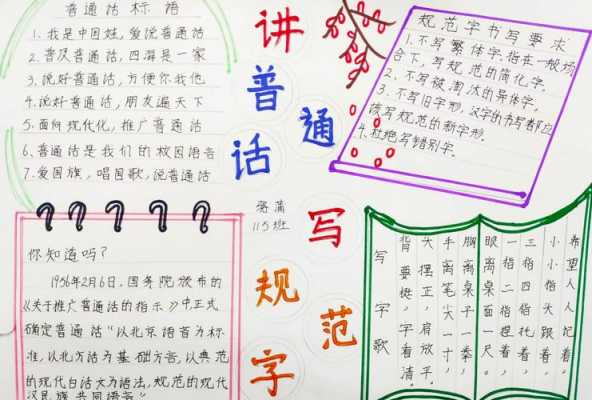 普通话标语
1.我是中国娃,爱说普通话
2.普及普通话,四海是一家
3.说好普通话,方便你我他
4.说好普通话,朋友遍天下
5.面向现代化,推广普通话
6.普通话是我们的校园语言
7.爱国旗,唱国歌,说普通话
讲普通话
写规范字
115班
规范字书写要求
1.不写繁体字.指在一般场
合下,写规范的简化字.
2.不写被淘汰的异体字.
3.不写旧字形,汉字的书写都应
该写规范的新字形.
4.杜绝写错别字.
你知道吗?
1956年2月6日,国务院颁布的
《关于推广普通话的指示》中正式
确定普通话“以北京语音为标
准,以北方话为基础方言,以典范
的现代白话文为语法,规范的现代
汉民族共同语言”
写字歌
背要挺,字看清,
头摆正,肩放平,
手离笔尖一寸,
胸离桌子一拳,
眼离桌面一尺。
一指二指捏着,
三指四指托着,
小小指头跟着,
希望人人记着。